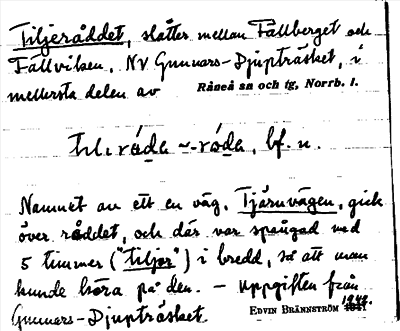 Tiljeråddet, slåtter mellan Fällberget och
Fällviken, NV Gunnars-Djupträsket, i
mellersta delen av Råneå sn och tg, Norrb. l.
~ -róda, bf. n.
Namnet av att en väg, Tjärnvägen, gick
över råddet, och där var spångad med
5 timmer ("tiljor") i bredd, så att man
kunde köra på den. - Uppgiften från
Gunnars-Djupträsket. EDVIN BRÄNNSTRÖM